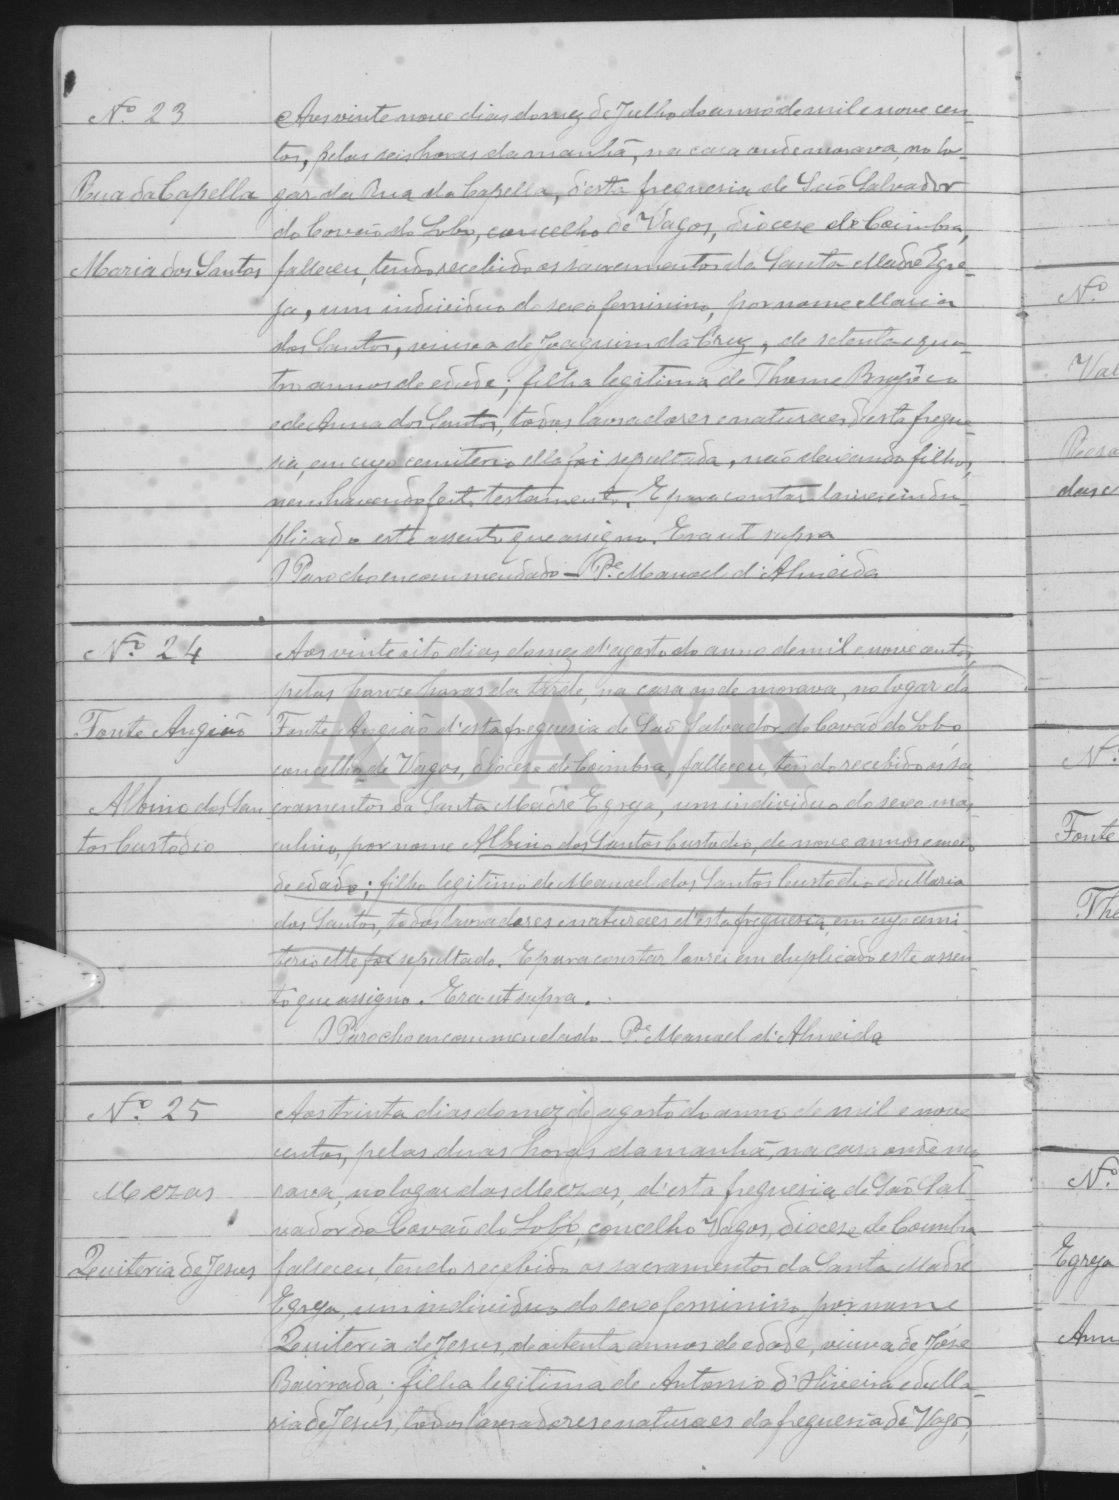 Nº 23
Aos vinte nove dias do mez de Julho do anno de mil e nove cen-
tos, pelas seis horas da manhã, na casa onde morava, no lo-
Rua da Capella
gar da Rua da Capella, d'esta freguesia de São Salvador
do Covão do Lobo, concelho de Vagos, diocese de Coimbra,
Maria dos Santos
falleceu, tendo recebido os sacramentos da Santa Madre Egre-
ja, um individuo do sexo feminino, por nome Maria
dos Santos, viuva de Joaquim da Cruz, de setenta e qua-
tro annos de edade; filha legitima de Thome
e de Anna dos Santos, todos lavradores e naturaes d'esta fregue-
sia, em cujo cemiterio ella foi sepultada, não deixando filhos,
nem havendo feito testamento. E para constar lavrei em du-
plicado este assento que assigno. Era ut supra
O Parocho encommendado - Pe. Manoel d'Almeida
Nº 24
Aos vinte oito dias do mez d'agosto do anno de mil e nove centos,
pelas horas da tarde, na casa onde morava, no logar da
Fonte Angião
Fonte Angião d'esta freguesia de São Salvador do Covão do Lobo
concelho de Vagos, diocese de Coimbra, falleceu, tendo recebido os sa-
Albino dos San
cramentos da Santa Madre Egreja, um individuo do sexo mas-
tos Custodio
culino, por nome Albino dos Santos Custodio, de nove annos e meio
de edade; filho legitimo de Manoel dos Santos Custodio e de Maria
dos Santos, todos lavradores e naturaes d'esta freguesia, em cujo cemi-
terio elle foi sepultado. E para constar lavrei em duplicado este assen-
to que assigno. Era ut supra.
O Parocho encommendado - Pe. Manoel d'Almeida
Nº 25
Aos trinta dias do mez de agosto do anno de mil e nove
centos, pelas duas horas da manhã, na casa onde mo-
Mezas
rava, no logar das Mezas, d'esta freguesia de São Sal-
vador do Covão do Lobo, concelho Vagos, diocese de Coimbra
Quiteria de Jesus
falleceu, tendo recebido os sacramentos da Santa Madre
Egreja, um individuo do sexo feminino, por nome
Quiteria de Jesus, de oitenta annos de edade, viuva de José
Bairrada; filha legitima de Antonio d'Oliveira e de Ma-
ria de Jesus, todos lavradores e naturaes da freguesia de Vagos,
ADAVR
Nº
Val
dos
Nº
Fonte
The
Nº
Egreja
Ann